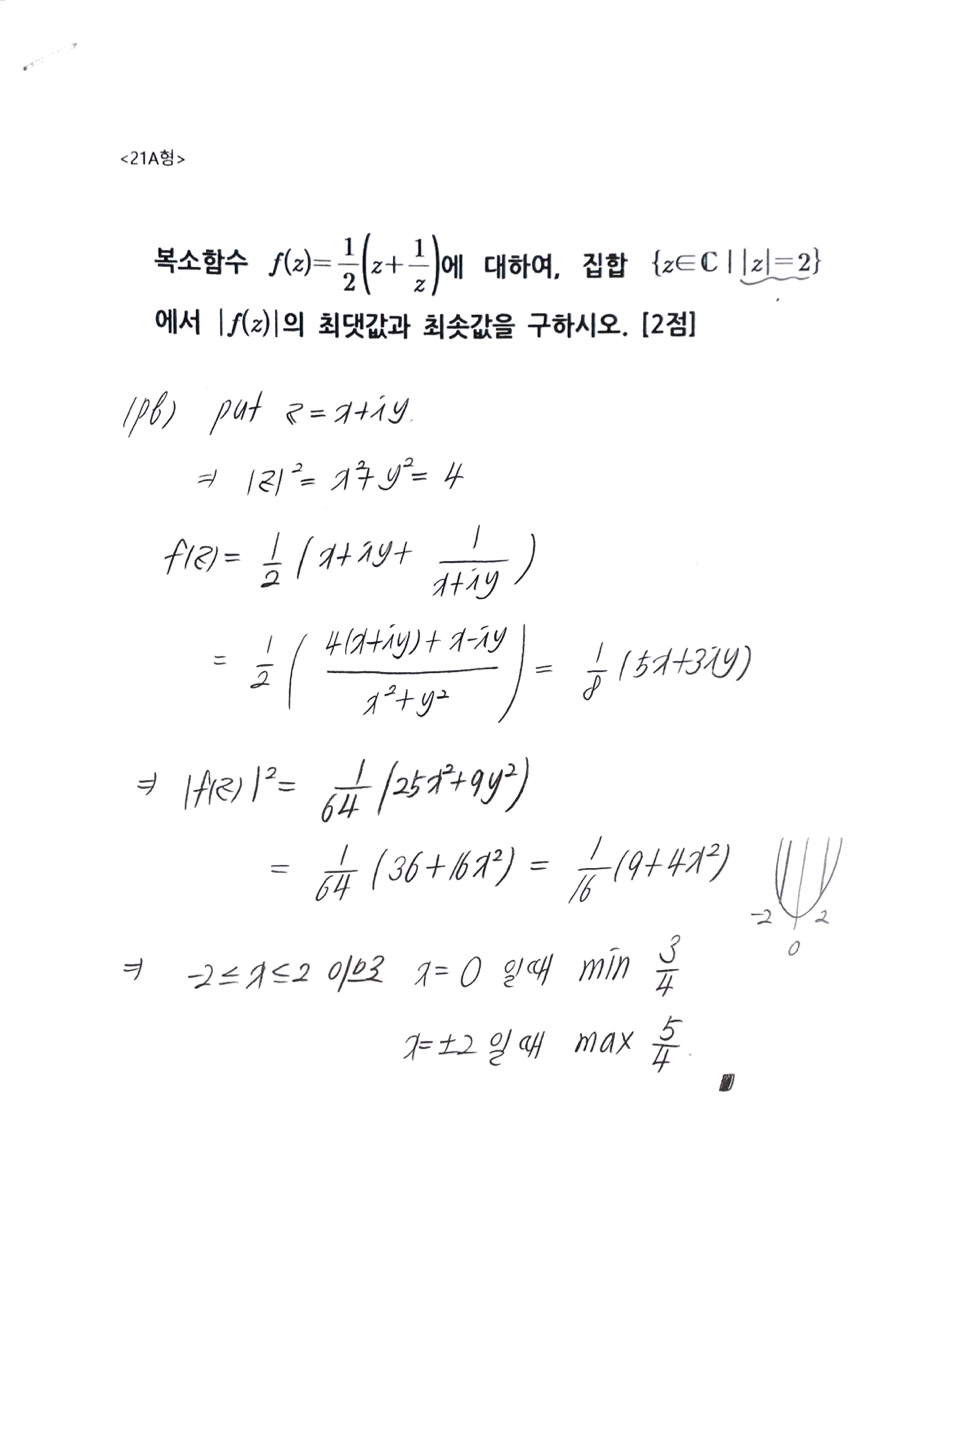 <21A형>
복소함수 f(z)=1/2(z+1/z)에 대하여, 집합 {z∈ℂ | |z|=2}
에서 |f(z)|의 최댓값과 최솟값을 구하시오. [2점]
(pf) put z = x+iy.
⇒ |z|² = x²+y² = 4
f(z) = 1/2 (x+iy + 1/(x+iy))
= 1/2 ((4(x+iy) + x-iy)/(x²+y²)) = 1/8 (5x+3iy)
⇒ |f(z)|² = 1/64 (25x²+9y²)
= 1/64 (36+16x²) = 1/16 (9+4x²)
-2 2
0
⇒ -2≤x≤2 이므로 x=0 일 때 min 3/4
x=±2 일 때 max 5/4.